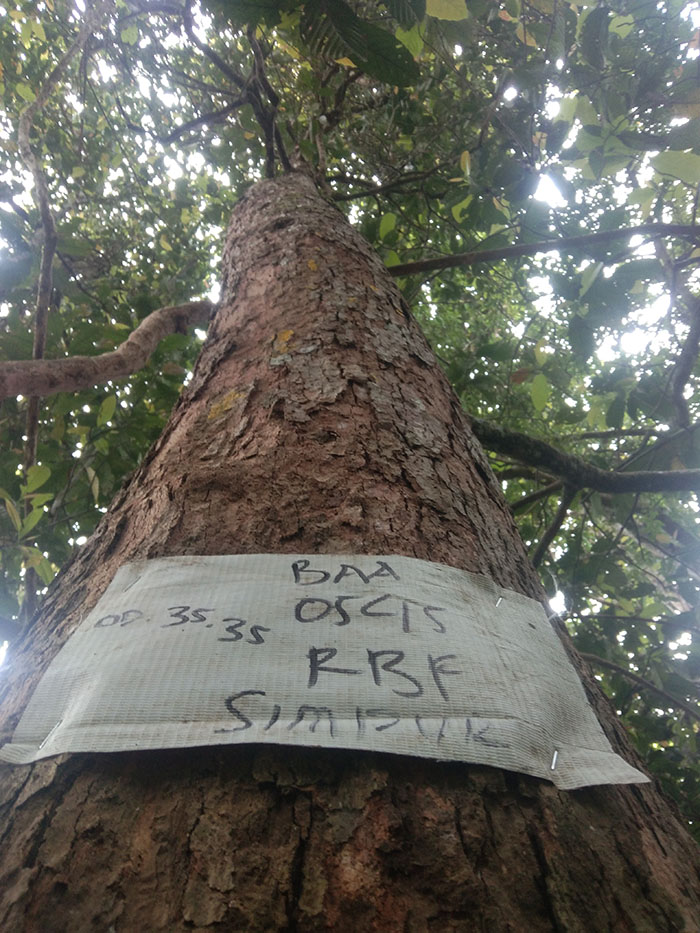 BAA
OD. 35.35
05475
RBF
SIMPUR